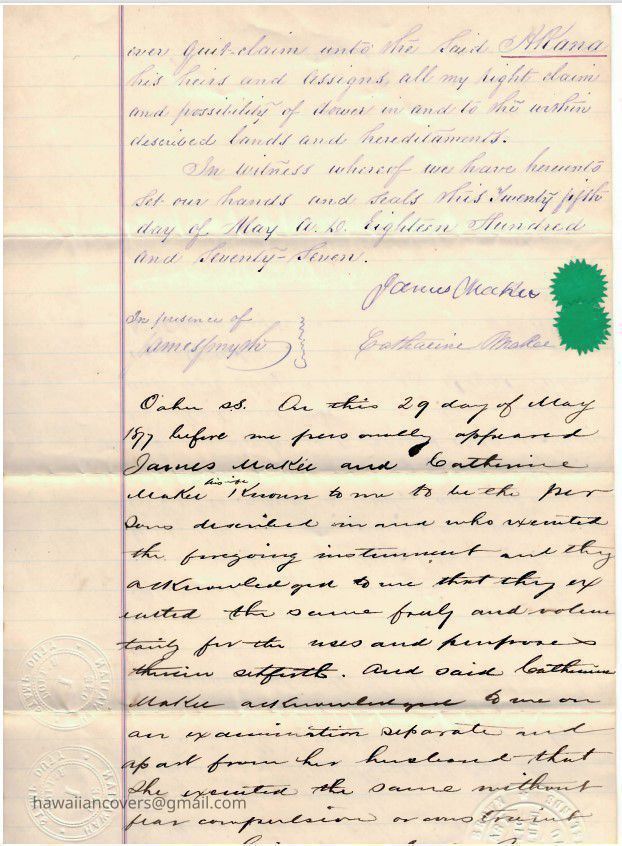 ever quit-claim unto the said AKana
his heirs and assigns, all my right claim
and possibility of dower in and to the within
described lands and hereditaments.
In witness whereof we have hereunto
set our hands and seals this Twenty fifth
day of May A.D. Eighteen Hundred
and Seventy-Seven.
James Makee
In presence of
James Smyth
Catharine Makee
Oahu ss. On this 29 day of May
1877 before me personally appeared
James Makee and Catherine
Makee his wife Known to me to be the per
sons described in and who executed
the foregoing instrument and they
acknowledged to me that they ex
ecuted the same freely and volun
tarily for the uses and purposes
therein setforth. And said Catherine
Makee acknowledged to me on
an examination separate and
apart from her husband that
she executed the same without
fear compulsion or constraint
hawaiiancovers@gmail.com